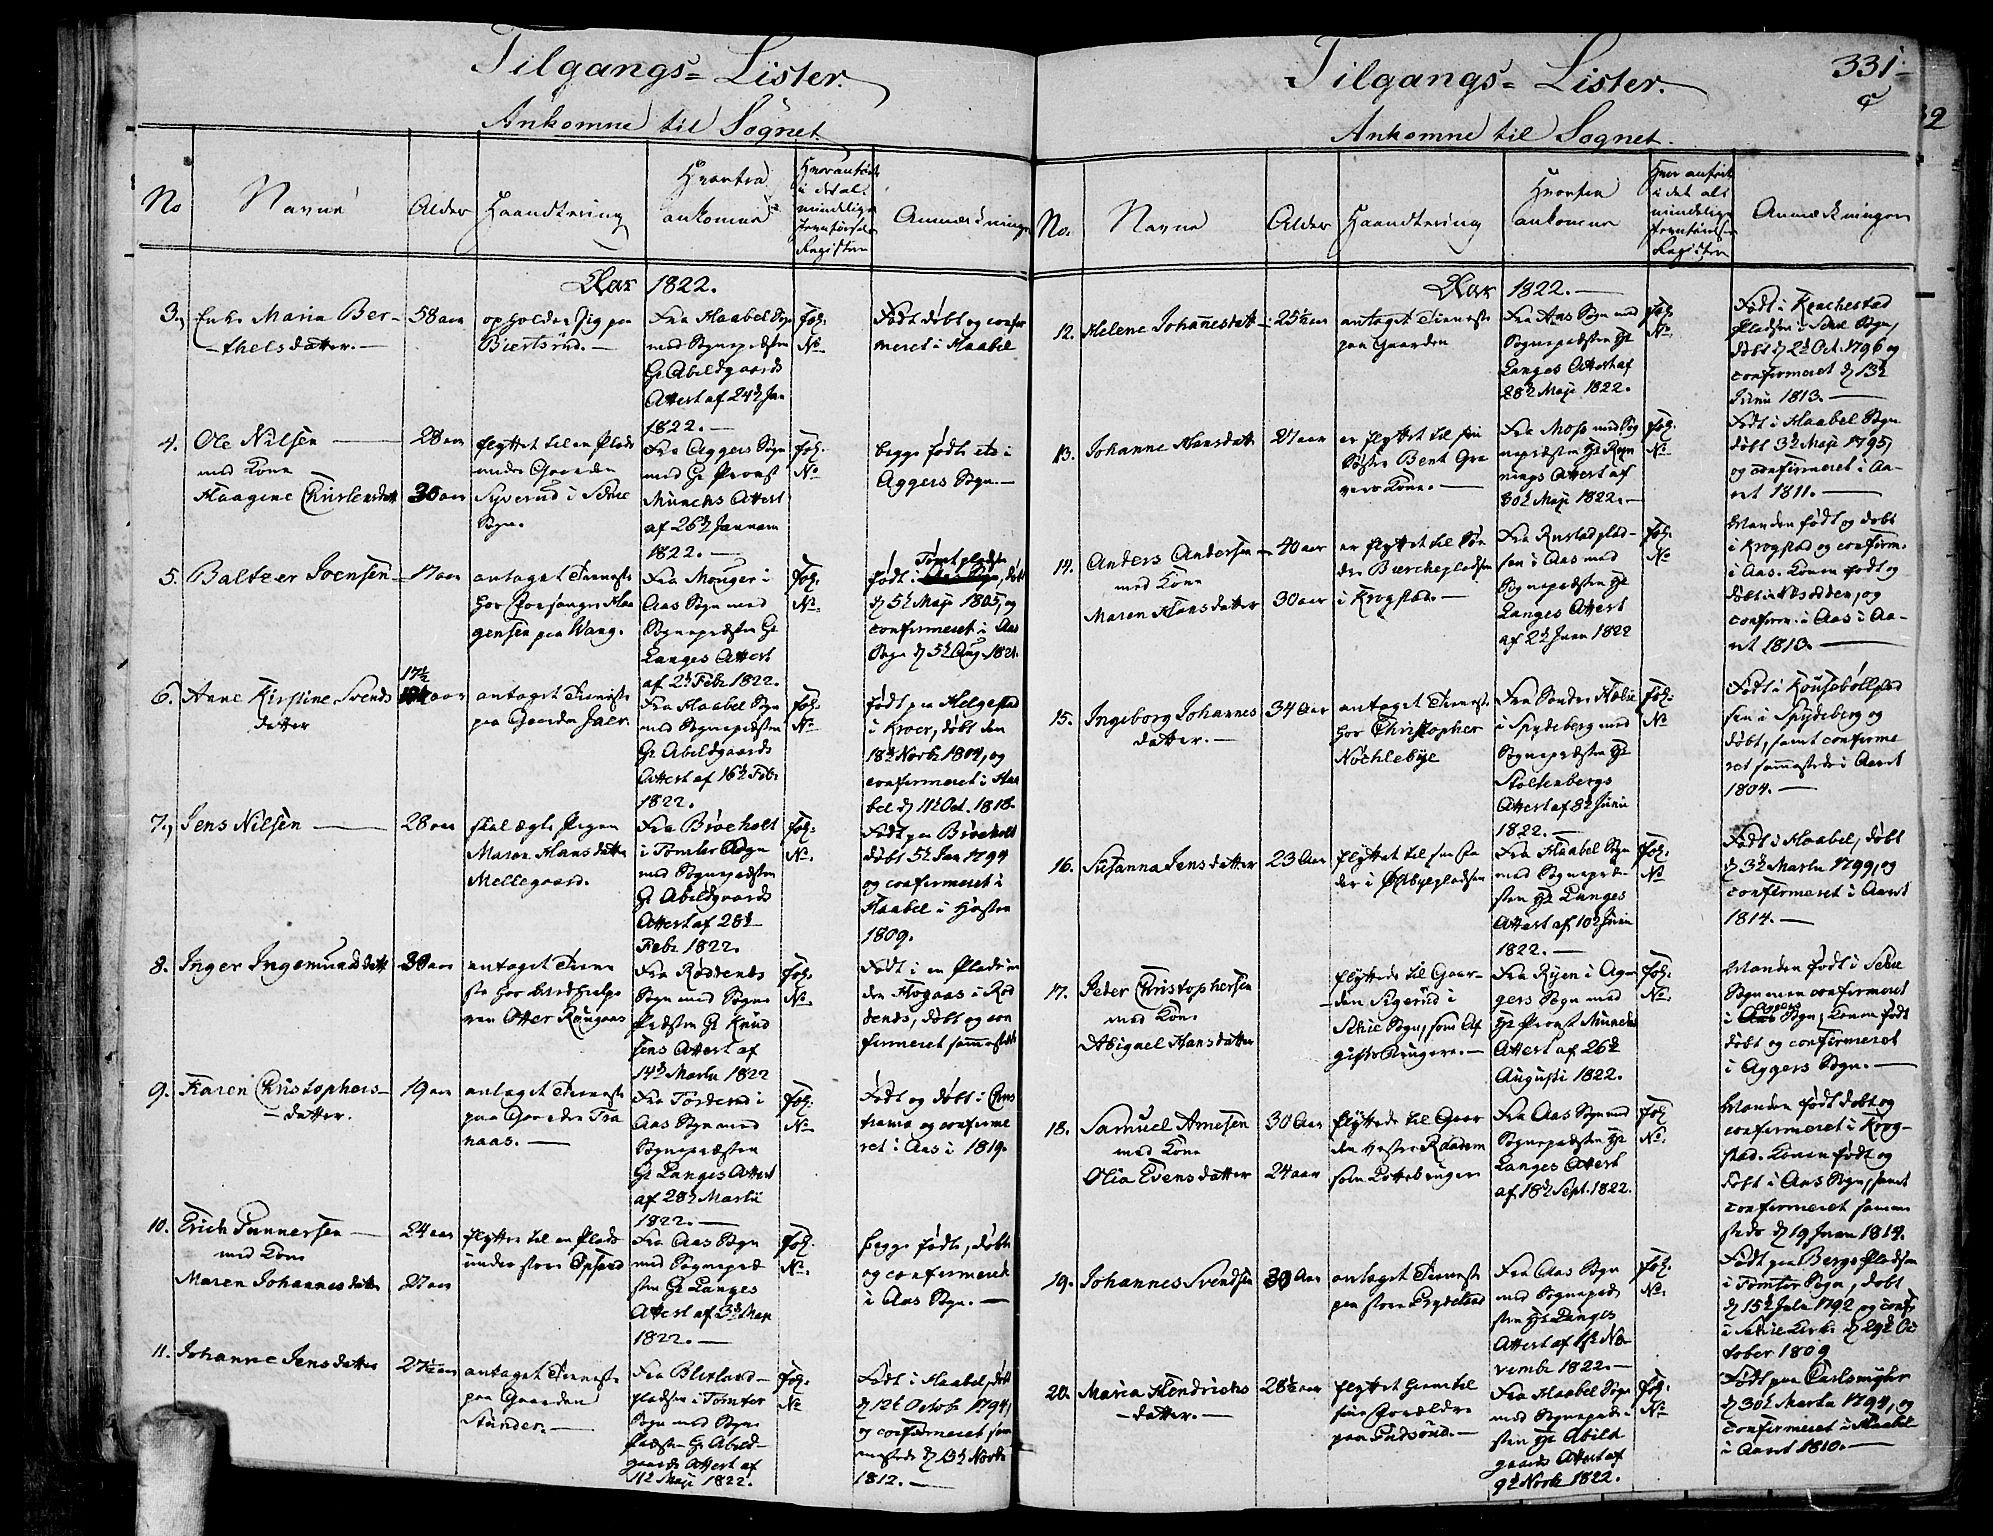 Tilgangs-Lister.
Ankomne til Sognet
No
Navne
Alder
Haandtering
Hvorfra
ankomne
Hvor anført
i det al-
mindelige
Jevnførelses
Register
Anmærkninger
Aar 1822.
3. Enke Maria Ber-
thelsdatter.
58 aar
opholder sig paa
Fra Haabel Sogn
med Sognepræsten
Hr Abildgaards
Attest af 24de Jan
1822.
Fol:
No
Født døbt og confir
meret i Haabel
4. Ole Nilsen
med Kone
Haagine Christensdatt
28 aar
30 aar
flyttet til en Plads
under Gaarden
Syverud i Schie
Sogn.
Fra Aggers Sogn
med Hr Provst
Munchs Attest
af 26de Januarii
1822.
Fol:
No
begge fødte etc i
Aggers Sogn.
5. Baltzer Svensen
17 aar
antaget Tieneste
hos Forsanger Haa
gensen paa Wang.
Fra Monger i
Aas Sogn med
Sognepræsten Hr
Langes Attest
af 2de Febr 1822.
Fol:
No
født i Tomtpladsen, døbt
d 5te Maji 1805, og
confirmeret i Aas
Sogn d 5te Aug. 1821.
6. Anne Kirstine Svends
datter
17½ aar
antaget Tieneste
paa Gaarden Jaer
Fra Haabel Sogn
med Sognepræsten
Hr Abildgaards
Attest af 16de Febr
1822.
Fol:
No
født paa Helgestad
i Kroer, døbt den
18de Novb 1804, og
confirmeret i Haa
bel d 11te Oct. 1818.
7. Jens Nilsen
28 aar
skal ægte Pigen
Maren Hansdatter
Mellegaard.
Fra Broeholt
i Tomter Sogn
med Sognepræsten
Hr Abildgaards
Attest af 28de
Febr 1822.
Fol:
No.
Født paa Broeholt
døbt 5te Jan 1794
og confirmeret i
Haabel i Høsten
1809.
8. Inger Ingemundsdatt
30 aar
antaget Tiene
ste hos Medhielpe
ren Otter Raugaas
Fra Rødenes
Sogn med Sogne
Præsten Hr Knud
sens Attest af
14de Martii 1822
Fol:
No.
Født i en Plads un
der Hogaas i Rø
denes, døbt og con
firmeret sammesteds
9. Karen Christophers-
datter.
19 aar
antaget Tieneste
paa Gaarden Tra
naas.
Fra Torderud i
Aas Sogn med
Sognepræsten
Hr Langes Attest
af 28de Martii
1822.
Fol:
No.
Født og døbt i Chris
tiania og confirme
ret i Aas i 1819.
10. Erich Gunnersen
med Kone
Maren Johannesdatter
24 aar
27 aar
flytter til en Plads
under store Opsand
Fra Aas Sogn
med Sognepræ
sten Hr Langes
Attest af 3de Maji
1822.
Fol:
No.
begge fødte, døbte
og confirmeret
i Aas Sogn.
11. Johanne Jensdatter
27½ aar
antaget Tieneste
paa Gaarden
Stunder.
Fra Blixland-
pladsen i Tomter
Sogn med Sogne
Præsten Hr Abild-
gaards Attest af
11te Maji 1822.
Fol:
No
Født i Haabel, døbt
d 12te Octob 1794,
og confirmeret sam
mesteds d 15de Novb
1812.
331
Tilgangs-Lister.
Ankomne til Sognet.
No.
Navne
Alder
Haandtering
Hvorfra
ankomne
Hvor anført
i det al
mindelige
Jevnførelses
Register
Anmærkninger
Aar 1822.
12. Helene Johannesdatt
25½ aar
antaget Tieneste
paa Gaarden
Fra Aas Sogn med
Sognepræsten Hr
Langes Attest af
28de Maji 1822.
Fol:
No.
Født i
Pladsen i Schie Sogn,
døbt d 2de Oct. 1796 og
confirmeret d 13de
Junii 1813.
13. Johanne Hansdatt
27 aar
er flyttet til sin
Søster Bent Gra
vers Kone.
Fra Moss med Sog
nepræsten Hr
Attest af
30te Maji 1822.
Fol:
No
Født i Haabel Sogn
døbt 3de Maji 1795,
og confirmeret i Aa-
ret 1811.
14. Anders Andersen
med Kone
Maren Hansdatter
40 aar
30 aar
er flyttet til Søn
dre Bierchepladsen
i Krogstad.
Fra Rustadplad-
sen i Aas med
Sognepræsten Hr
Langes Attest
af 2de Junii 1822
Fol:
No
Manden født og døbt
i Krogstad og confirm.
i Aas. Konen født og
døbt i Nesodden, og
confirm. i Aas i Aa-
ret 1813.
15. Ingeborg Johannes
datter.
34 aar
antaget Tieneste
hos Christopher
Nøchlebye
Fra Sønder
i Spydeberg med
Sognepræsten Hr
Stoltenbergs
Attest af 8de Junii
1822.
Fol:
No
Født i
sen i Spydeberg og
døbt, samt confirme
ret sammesteds i Aaret
1804.
16. Susanna Jensdatter
23 Aar
flyttet til sin Fa
der i Østbyepladsen
Fra Haabel Sogn
med Sognepræ-
sten Hr Langes
Attest af 10de Junii
1822.
Fol:
No
Født i Haabel, døbt
d 3de Martii 1799, og
confirmeret i Aaret
1814.
17. Peder Christophersen
med Kone
Abigael Hansdatter
flyttede til Gaar-
den Sigerud i
Schie Sogn, som Af
gifts Brugere.
Fra Ryen i Ag-
gers Sogn med
Hr Provst Munchs
Attest af 26de
Augusti 1822.
Fol:
No.
Manden født i Schie
Sogn men confirmeret
i Aggers Sogn, Konen født
døbt og confirmeret
i Aggers Sogn.
18. Samuel Arnesen
med Kone
Olia Evensdatter
30 Aar
24 aar
flyttede til Gaar
den Vestre Raaum
som Lottebruger
Fra Aas Sogn med
Sognepræsten Hr
Langes Attest
af 18de Sept. 1822.
Fol:
No.
Manden født døbt og
confirmeret i Krog-
stad. Konen født og
døbt i Aas Sogn, samt
confirmeret samme
steds d 19 Junii 1814.
19. Johannes Svendsen
30 Aar
antaget Tieneste
paa store Frydelund
Fra Aas Sogn
med Sognepræ
sten Hr Langes
Attest af 1ste No-
vembr 1822.
Fol:
No.
Født paa Bergs Pladsen
i Tomter Sogn, døbt
d 15de Julii 1792 og conf.
i Schie Kirke d 29de Oc
tober 1809
20. Maria Hendrichs
datter.
28½ aar
flyttet hiem til
sine Forældre
paa Gudsund.
Fra Haabel Sogn
med Sognepræ-
sten Hr Abild
gaards Attest af
9de Novb 1822.
Fol:
No
Født paa
d 30te Martii 1794, og
confirmeret i Haabel
i Aaret 1810.